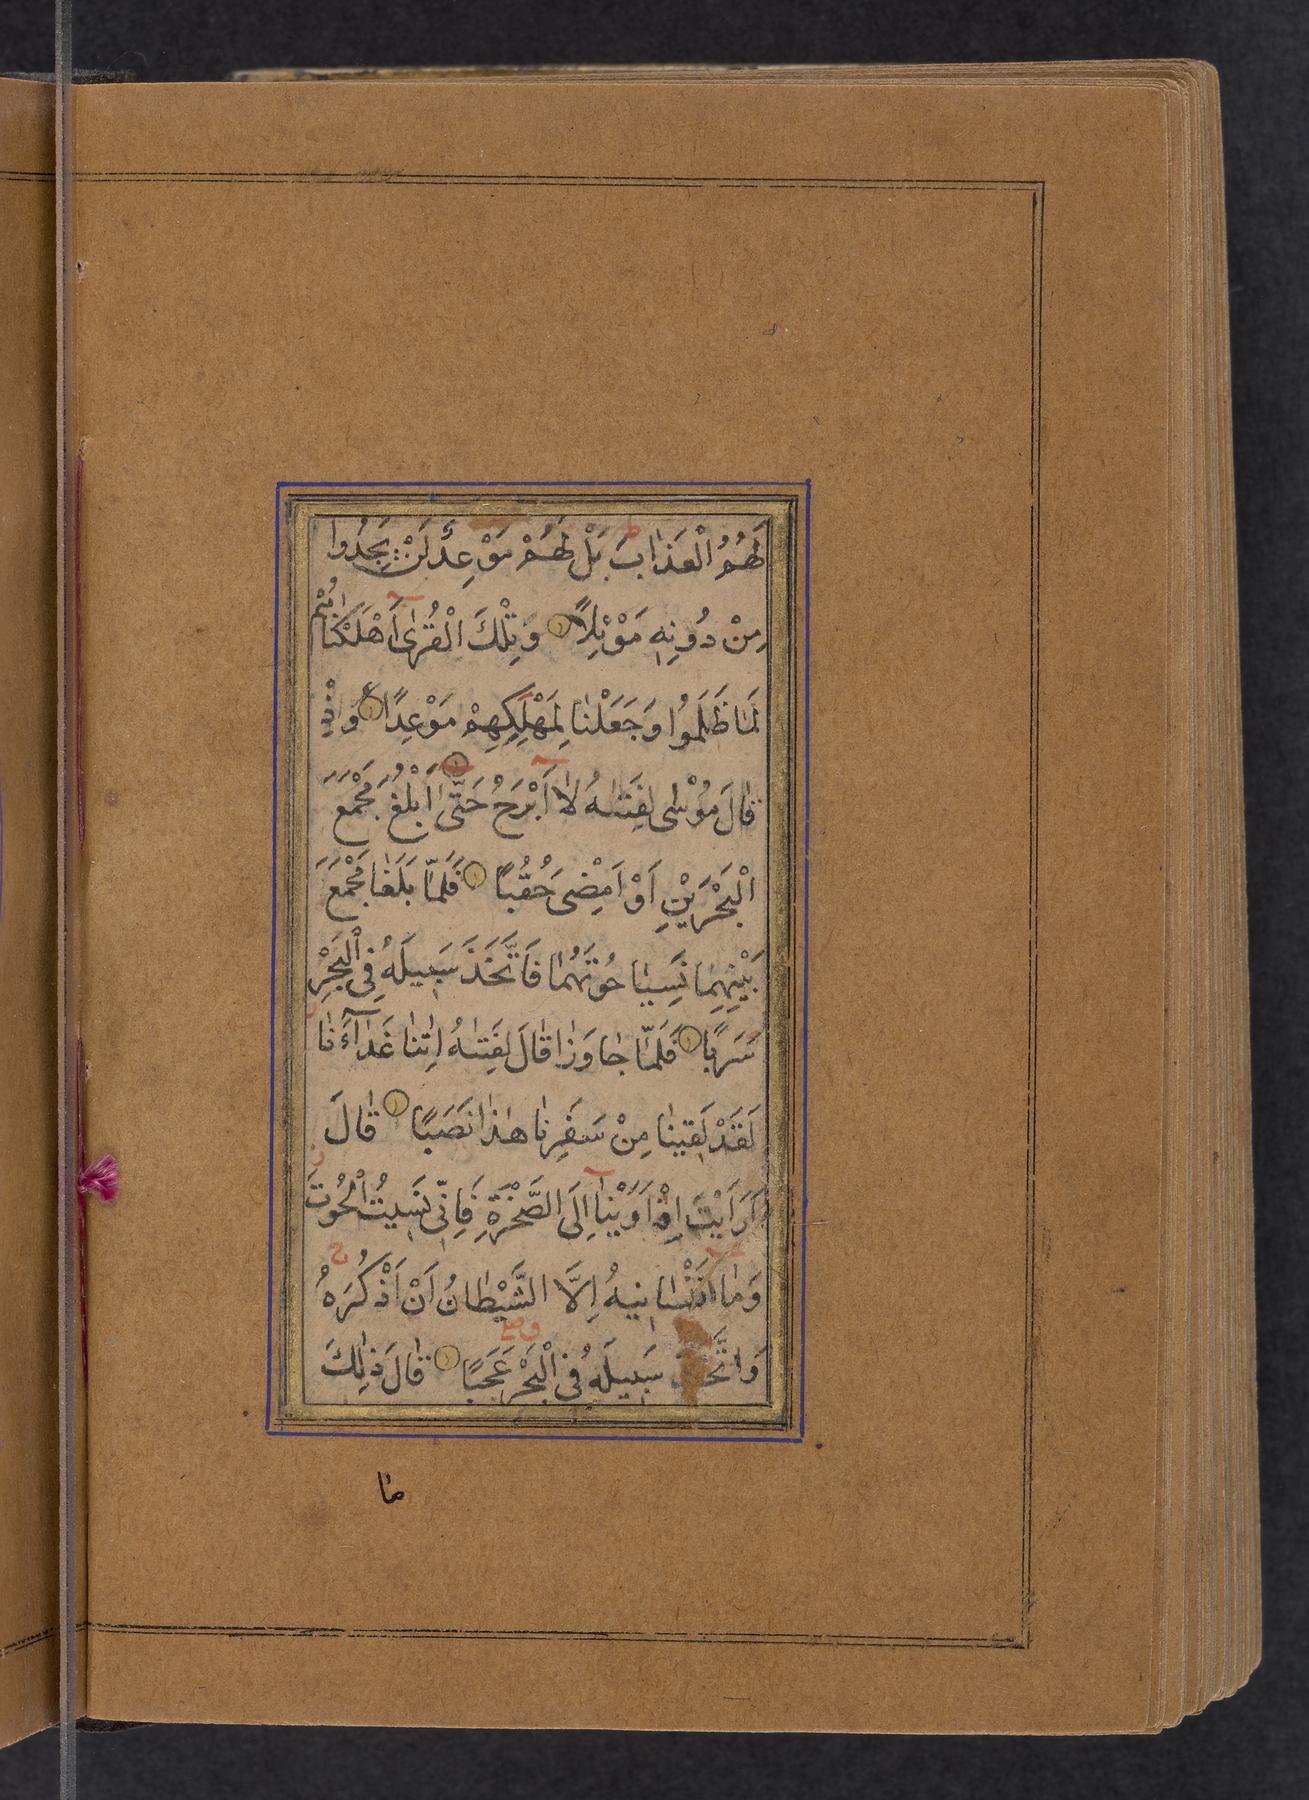 لَهُمُ الْعَذَابَ بَلْ لَهُمْ مَوْعِدٌ لَنْ يَجِدُوا
مِنْ دُونِهٖ مَوْئِلًا وَتِلْكَ الْقُرٰى اَهْلَكْنَاهُمْ
لَمَّا ظَلَمُوا وَجَعَلْنَا لِمَهْلِكِهِمْ مَوْعِدًا وَاِذْ
قَالَ مُوْسٰى لِفَتٰىهُ لَا اَبْرَحُ حَتّٰى اَبْلُغَ مَجْمَعَ
الْبَحْرَيْنِ اَوْ اَمْضِىَ حُقُبًا فَلَمَّا بَلَغَا مَجْمَعَ
بَيْنِهِمَا نَسِيَا حُوتَهُمَا فَاتَّخَذَ سَبِيلَهُ فِى الْبَحْرِ
سَرَبًا فَلَمَّا جَاوَزَا قَالَ لِفَتٰىهُ اٰتِنَا غَدَآءَنَا
لَقَدْ لَقِينَا مِنْ سَفَرِنَا هٰذَا نَصَبًا قَالَ
اَرَاَيْتَ اِذْ اَوَيْنَا اِلَى الصَّخْرَةِ فَاِنِّى نَسِيتُ الْحُوتَ
وَمَا اَنْسَانِيهُ اِلَّا الشَّيْطَانُ اَنْ اَذْكُرَهُ
وَاتَّخَذَ سَبِيلَهُ فِى الْبَحْرِ عَجَبًا قَالَ ذٰلِكَ
مَا